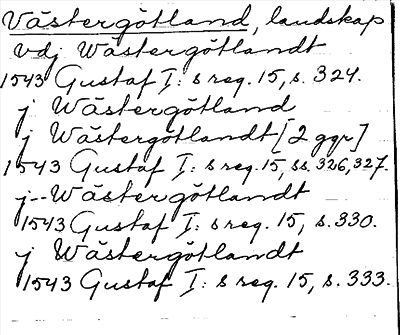 Västergötland, landskap
vdj Wästergötlandt
1543 Gustaf I: s reg. 15, s. 324.
j Wästergötland
j Wästergötlandt [2 ggr]
1543 Gustaf I: s reg. 15, ss. 326, 327.
j-- Wästergötlandt
1543 Gustaf I: s reg. 15, s. 330.
j Wästergötlandt
1543 Gustaf I: s reg. 15, s. 333.